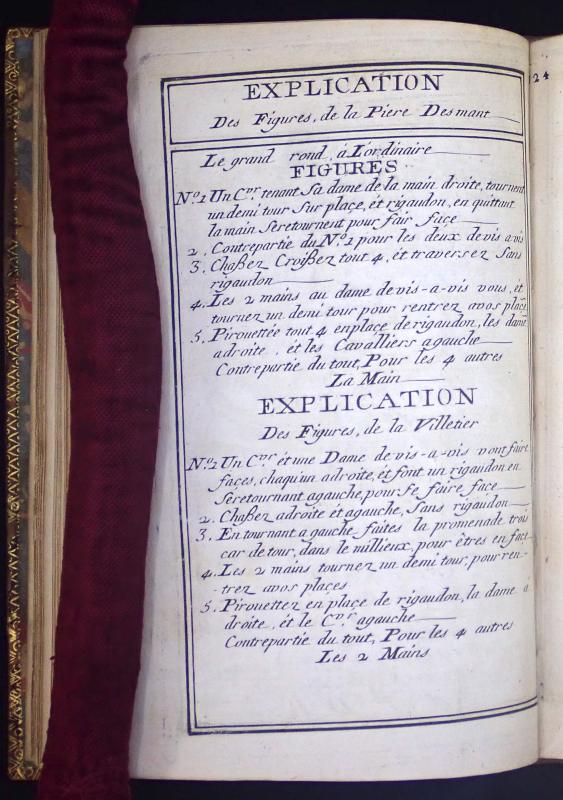 EXPLICATION
Des Figures, de la Piere Desmant
Le grand rond, à Lordinaire
FIGURES
Nº.1 Un C.vr, tenant Sa dame de la main droite, tournent
un demi tour Sur plaçe, ét rigaudon, en quittant
la main Seretournent pour fair façe
2, Contrepartie du Nº.1 pour les deux devis avis
3, Chaßez Croißez tout 4, et traversez Sans
rigaudon
4, Les 2 mains au dame devis-a-vis vous, ét
tournez un demi tour pour rentrez avos plaçe
5, Pirouettée tout 4 enplaçe de rigaudon, les dame
adroite, ét les Cavalliers agauche
Contrepartie du tout, Pour les 4 autres
La Main
EXPLICATION
Des Figures, de la Villetier
Nº.1 Un C.vr étune Dame devis-a-vis vont faire
façes, chaqu'un adroite, ét font un rigaudon en
Seretournant agauche, pour Se faire façe
2. Chaßez adroite et agauche, Sans rigaudon
3, En tournant agauche faites la promenade trois
car de tour, dans le millieux, pour êtres en façe
4, Les 2 mains tournez un demi tour, pour ren-
-trez avos plaçes
5, Pirouettez en plaçe de rigaudon, la dame à
droite, et le C.vr agauche
Contrepartie du tout, Pour les 4 autres
Les 2 Mains
24